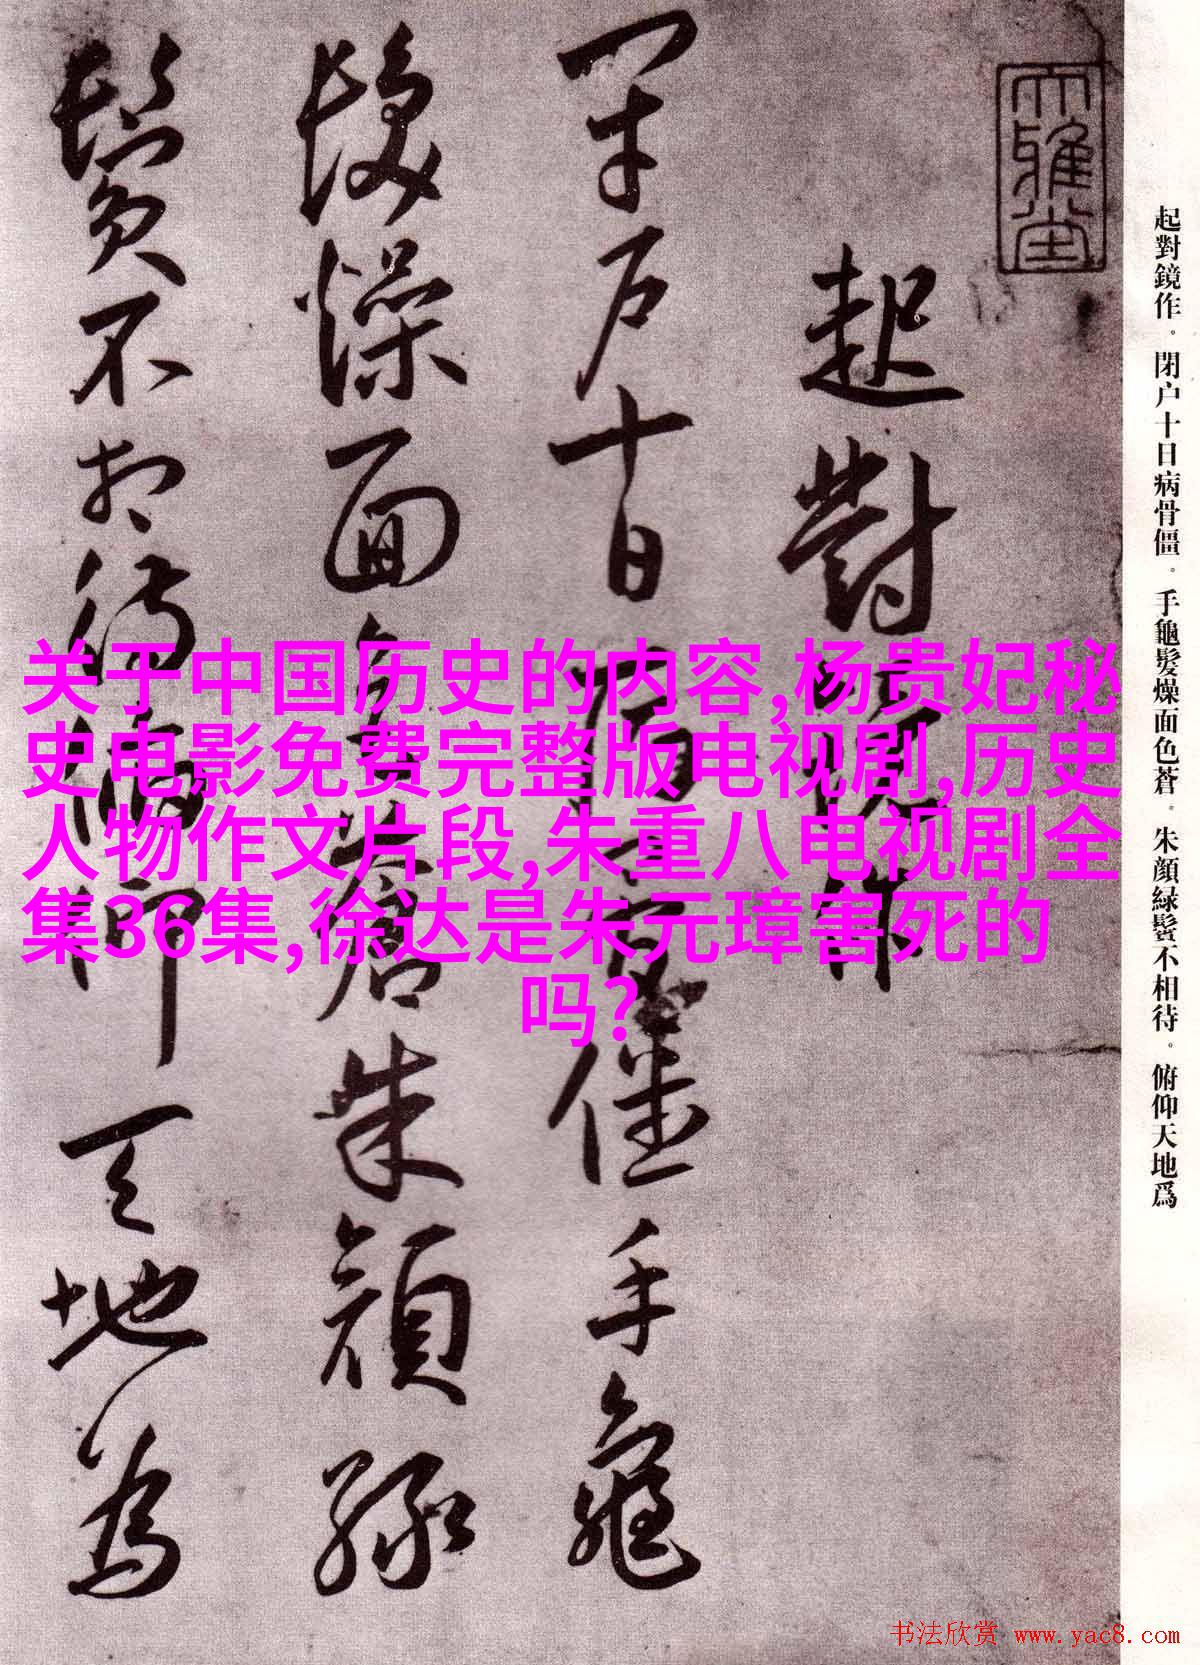 大雅堂
起對鏡作
閉户十日病骨僵手龜
髮燥面色蒼朱顔緑
鬢不相待俯仰天地為
起對鏡作。閉户十日病骨僵。手龜髮燥面色蒼。朱顔緑鬢不相待。俯仰天地爲
关于中国历史的内容,杨贵妃秘
史电影免费完整版电视剧,历史
人物作文片段,朱重八电视剧全
集36集,徐达是朱元璋害死的
吗?
书法欣赏 www.yac8.com